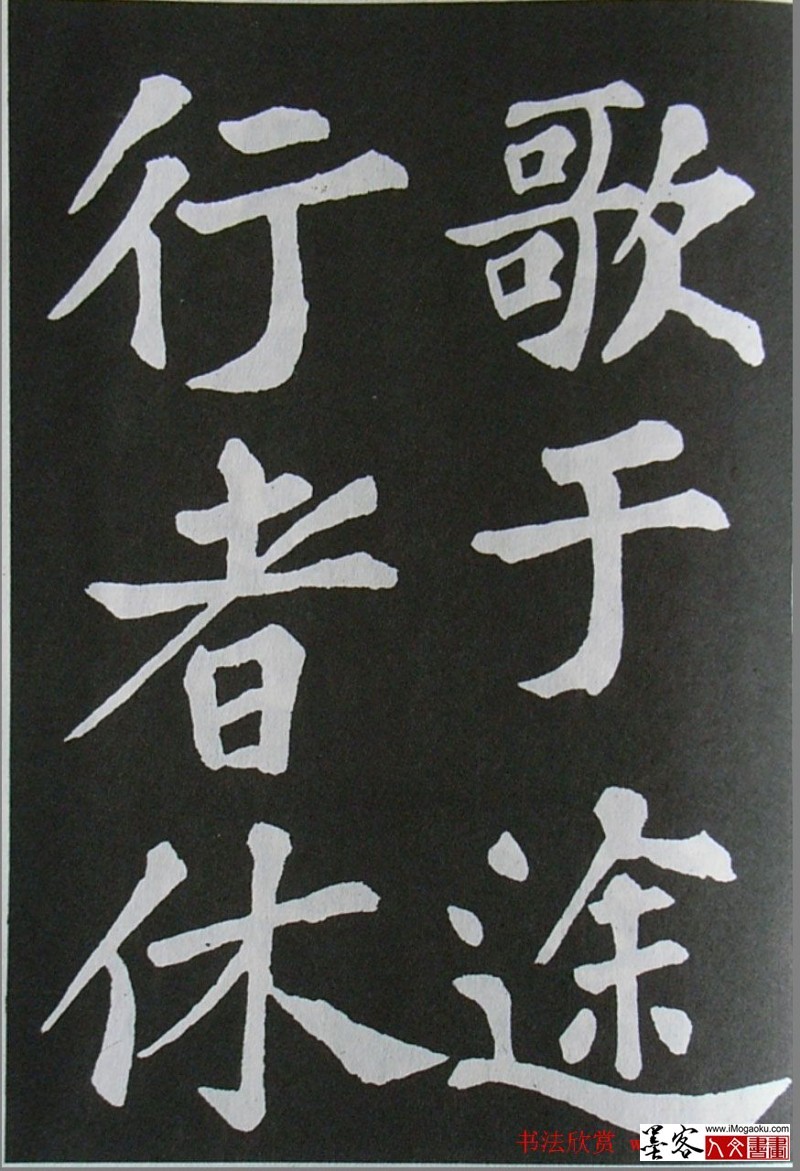 歌于途
行者休
书法欣赏 w
www.iMogaoku.com
墨客人文書畫